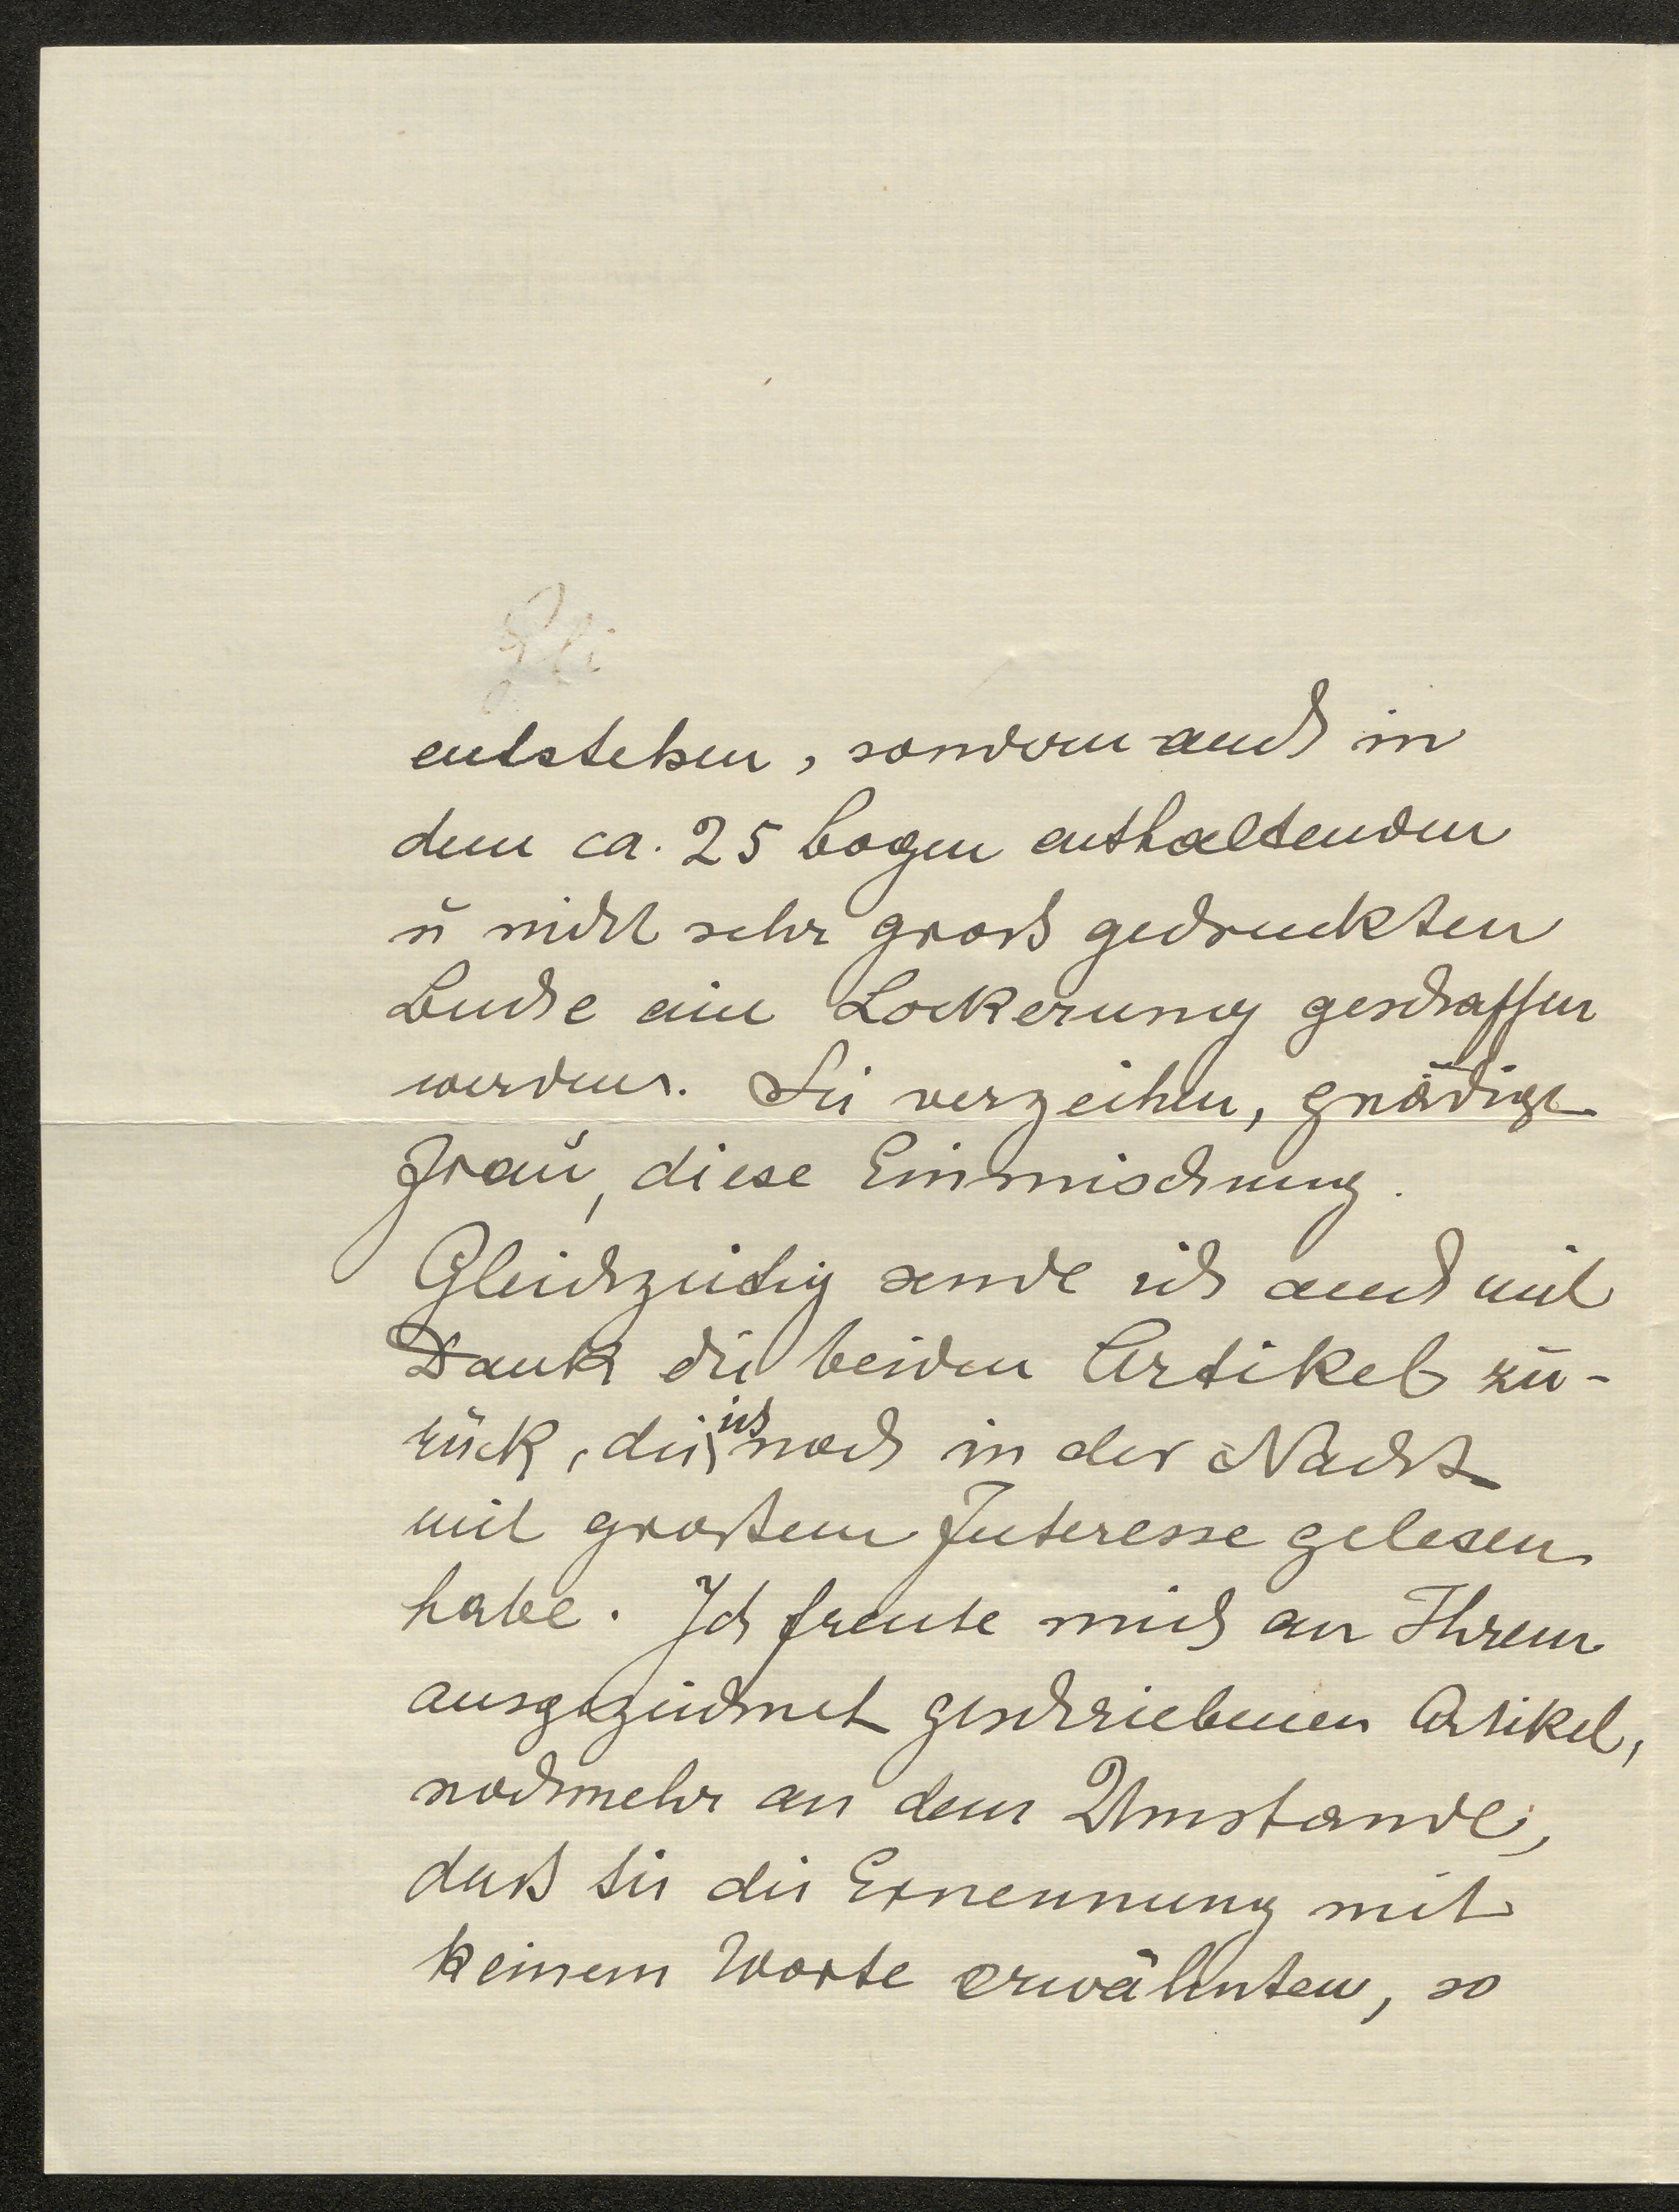 entstehen, sondern auch in
dem ca. 25 bogen enthaltenden
ū nicht sehr groß gedruckten
Buche eine Lockerung geschaffen
werden. Sie verzeihen, gnädige
Frau, diese Einmischung.
Gleichzeitig sende ich auch mit
Dank die beiden Artikel zu-
rück, die ich noch in der Nacht
mit großem Interesse gelesen
habe. Ich freute mich an Ihrem
ausgezeichnet geschriebenen Artikel,
nochmehr an dem Umstande,
daß Sie die Ernennung mit
keinem Worte erwähnten, so